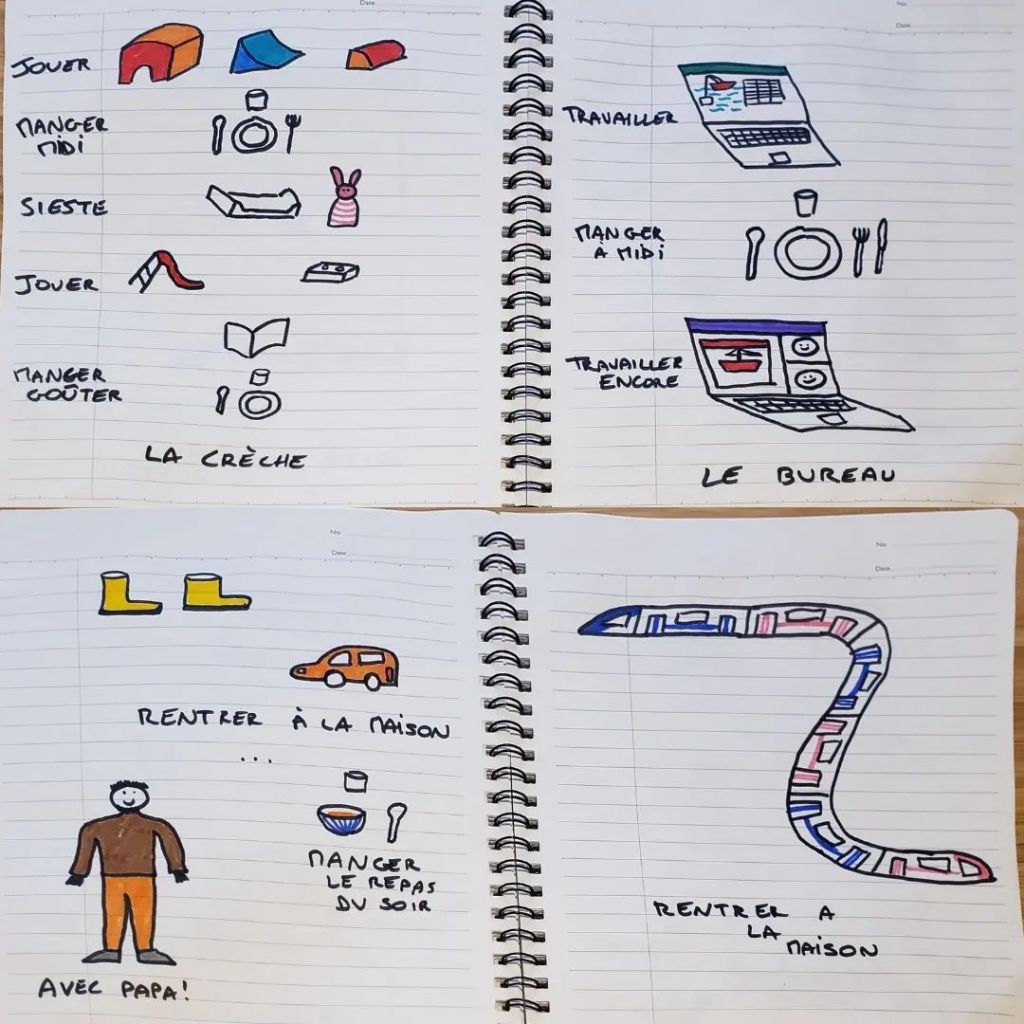 Date
JOUER
MANGER
MIDI
SIESTE
JOUER
MANGER
GOÛTER
LA CRÈCHE
No
Date
TRAVAILLER
MANGER
À MIDI
TRAVAILLER
ENCORE
LE BUREAU
No
Date
RENTRER À LA MAISON
...
MANGER
LE REPAS
DU SOIR
AVEC PAPA!
No
Date
RENTRER A
LA
MAISON